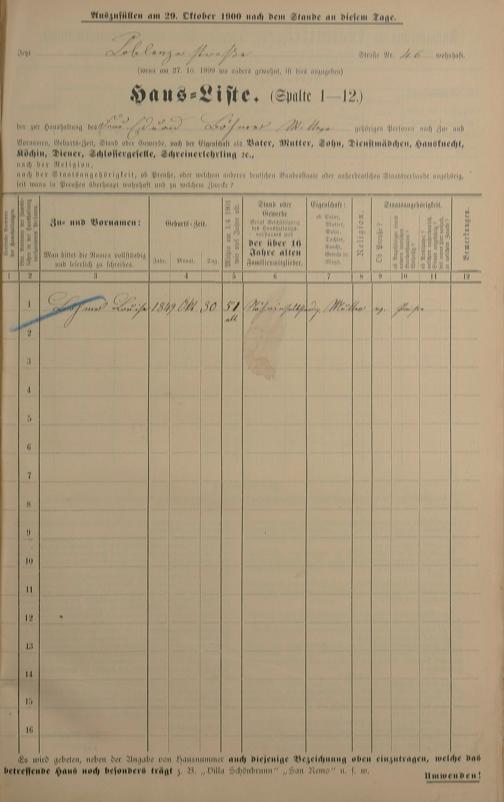 Auszufüllen am 29. Oktober 1900 nach dem Stande an diesem Tage.
Jetzt Coblenzerstraße Straße Nr. 46 wohnhaft.
(wenn am 27. 10. 1899 wo anders gewohnt, ist dies anzugeben)
Haus-Liste. (Spalte 1—12.)
der zur Haushaltung des Böhmer Wittwe gehörigen Personen nach Zu- und
Vornamen, Geburts-Zeit, Stand oder Gewerbe, nach der Eigenschaft als Vater, Mutter, Sohn, Dienstmädchen, Hausknecht,
Köchin, Diener, Schlossergeselle, Schreinerlehrling ꝛc.,
nach der Religion,
nach der Staatsangehörigkeit, ob Preuße, oder welchem anderen deutschen Bundesstaate oder außerdeutschen Staatsverbande angehörig,
seit wann in Preußen überhaupt wohnhaft und zu welchem Zwecke?
Zu- und Vornamen:
Man bittet die Namen vollständig
und leserlich zu schreiben.
Geburts-Zeit.
Jahr. Monat. Tag.
Stand oder
Gewerbe
der über 16
Jahre alten
Familienmitglieder.
Eigenschaft:
ob Vater,
Mutter,
Sohn,
Tochter,
Knecht,
Magd.
Religion.
Staatsangehörigkeit.
Ob Preuße?
Bemerkungen.
1 2 3 4 5 6 7 8 9 10 11 12
1 Böhmer Louise 1849 Okt. 30 51 Mutter ev. Preuße
alt
2
3
4
5
6
7
8
9
10
11
12
13
14
15
16
Es wird gebeten, neben der Angabe von Hausnummer auch diejenige Bezeichnung oben einzutragen, welche das
betreffende Haus noch besonders trägt z. B. „Villa Schönbrunn" „San Remo" u. s. w.
Umwenden!